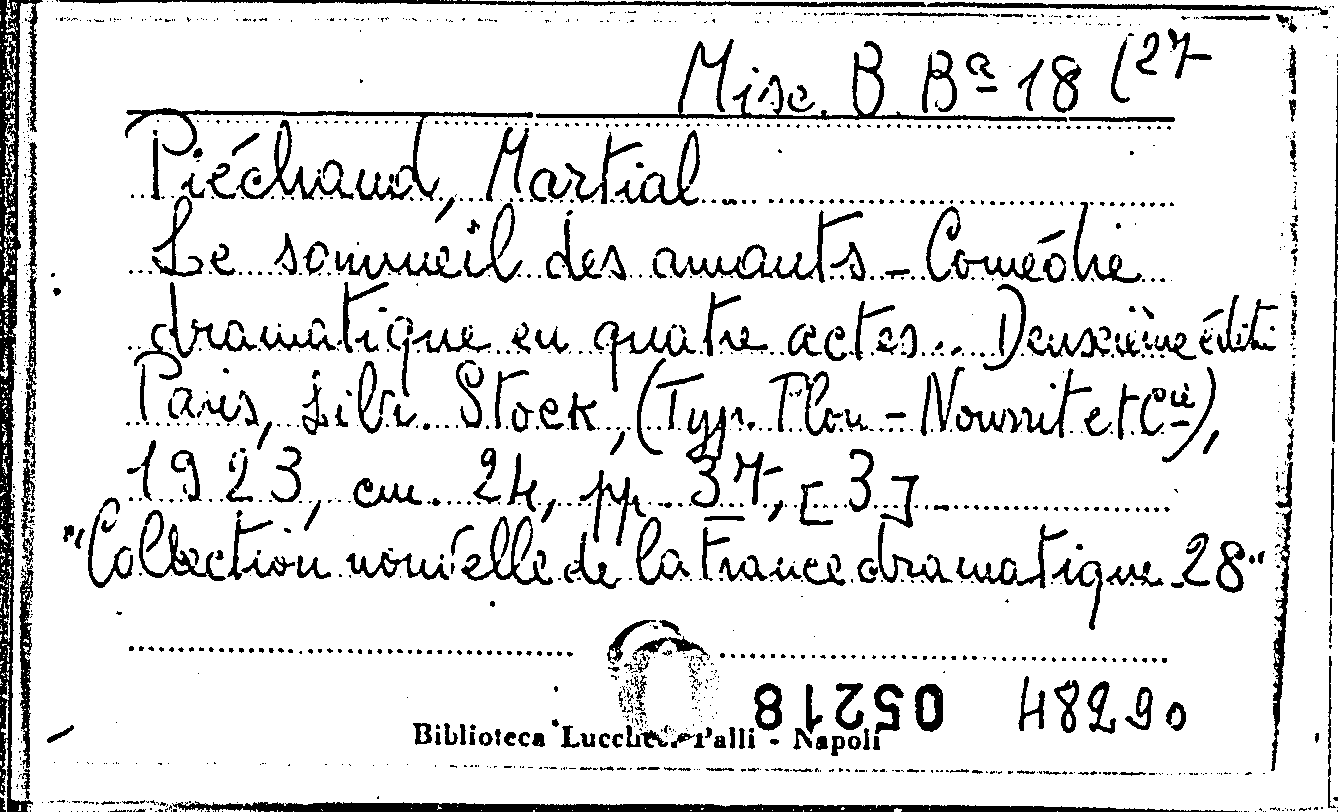 Misc. B Bª 18 (27
Piéchaud, Martial
Le sommeil des amants - Comédie
dramatique en quatre actes.. Deuxième éditi
Paris, Libr. Stock, (Typ. Plon - Nourrit et Cie),
1923, cm. 24, pp. 37, [3]
"Collection nouvelle de la France dramatique 28"
05218 48290
Biblioteca Lucchesi Palli - Napoli